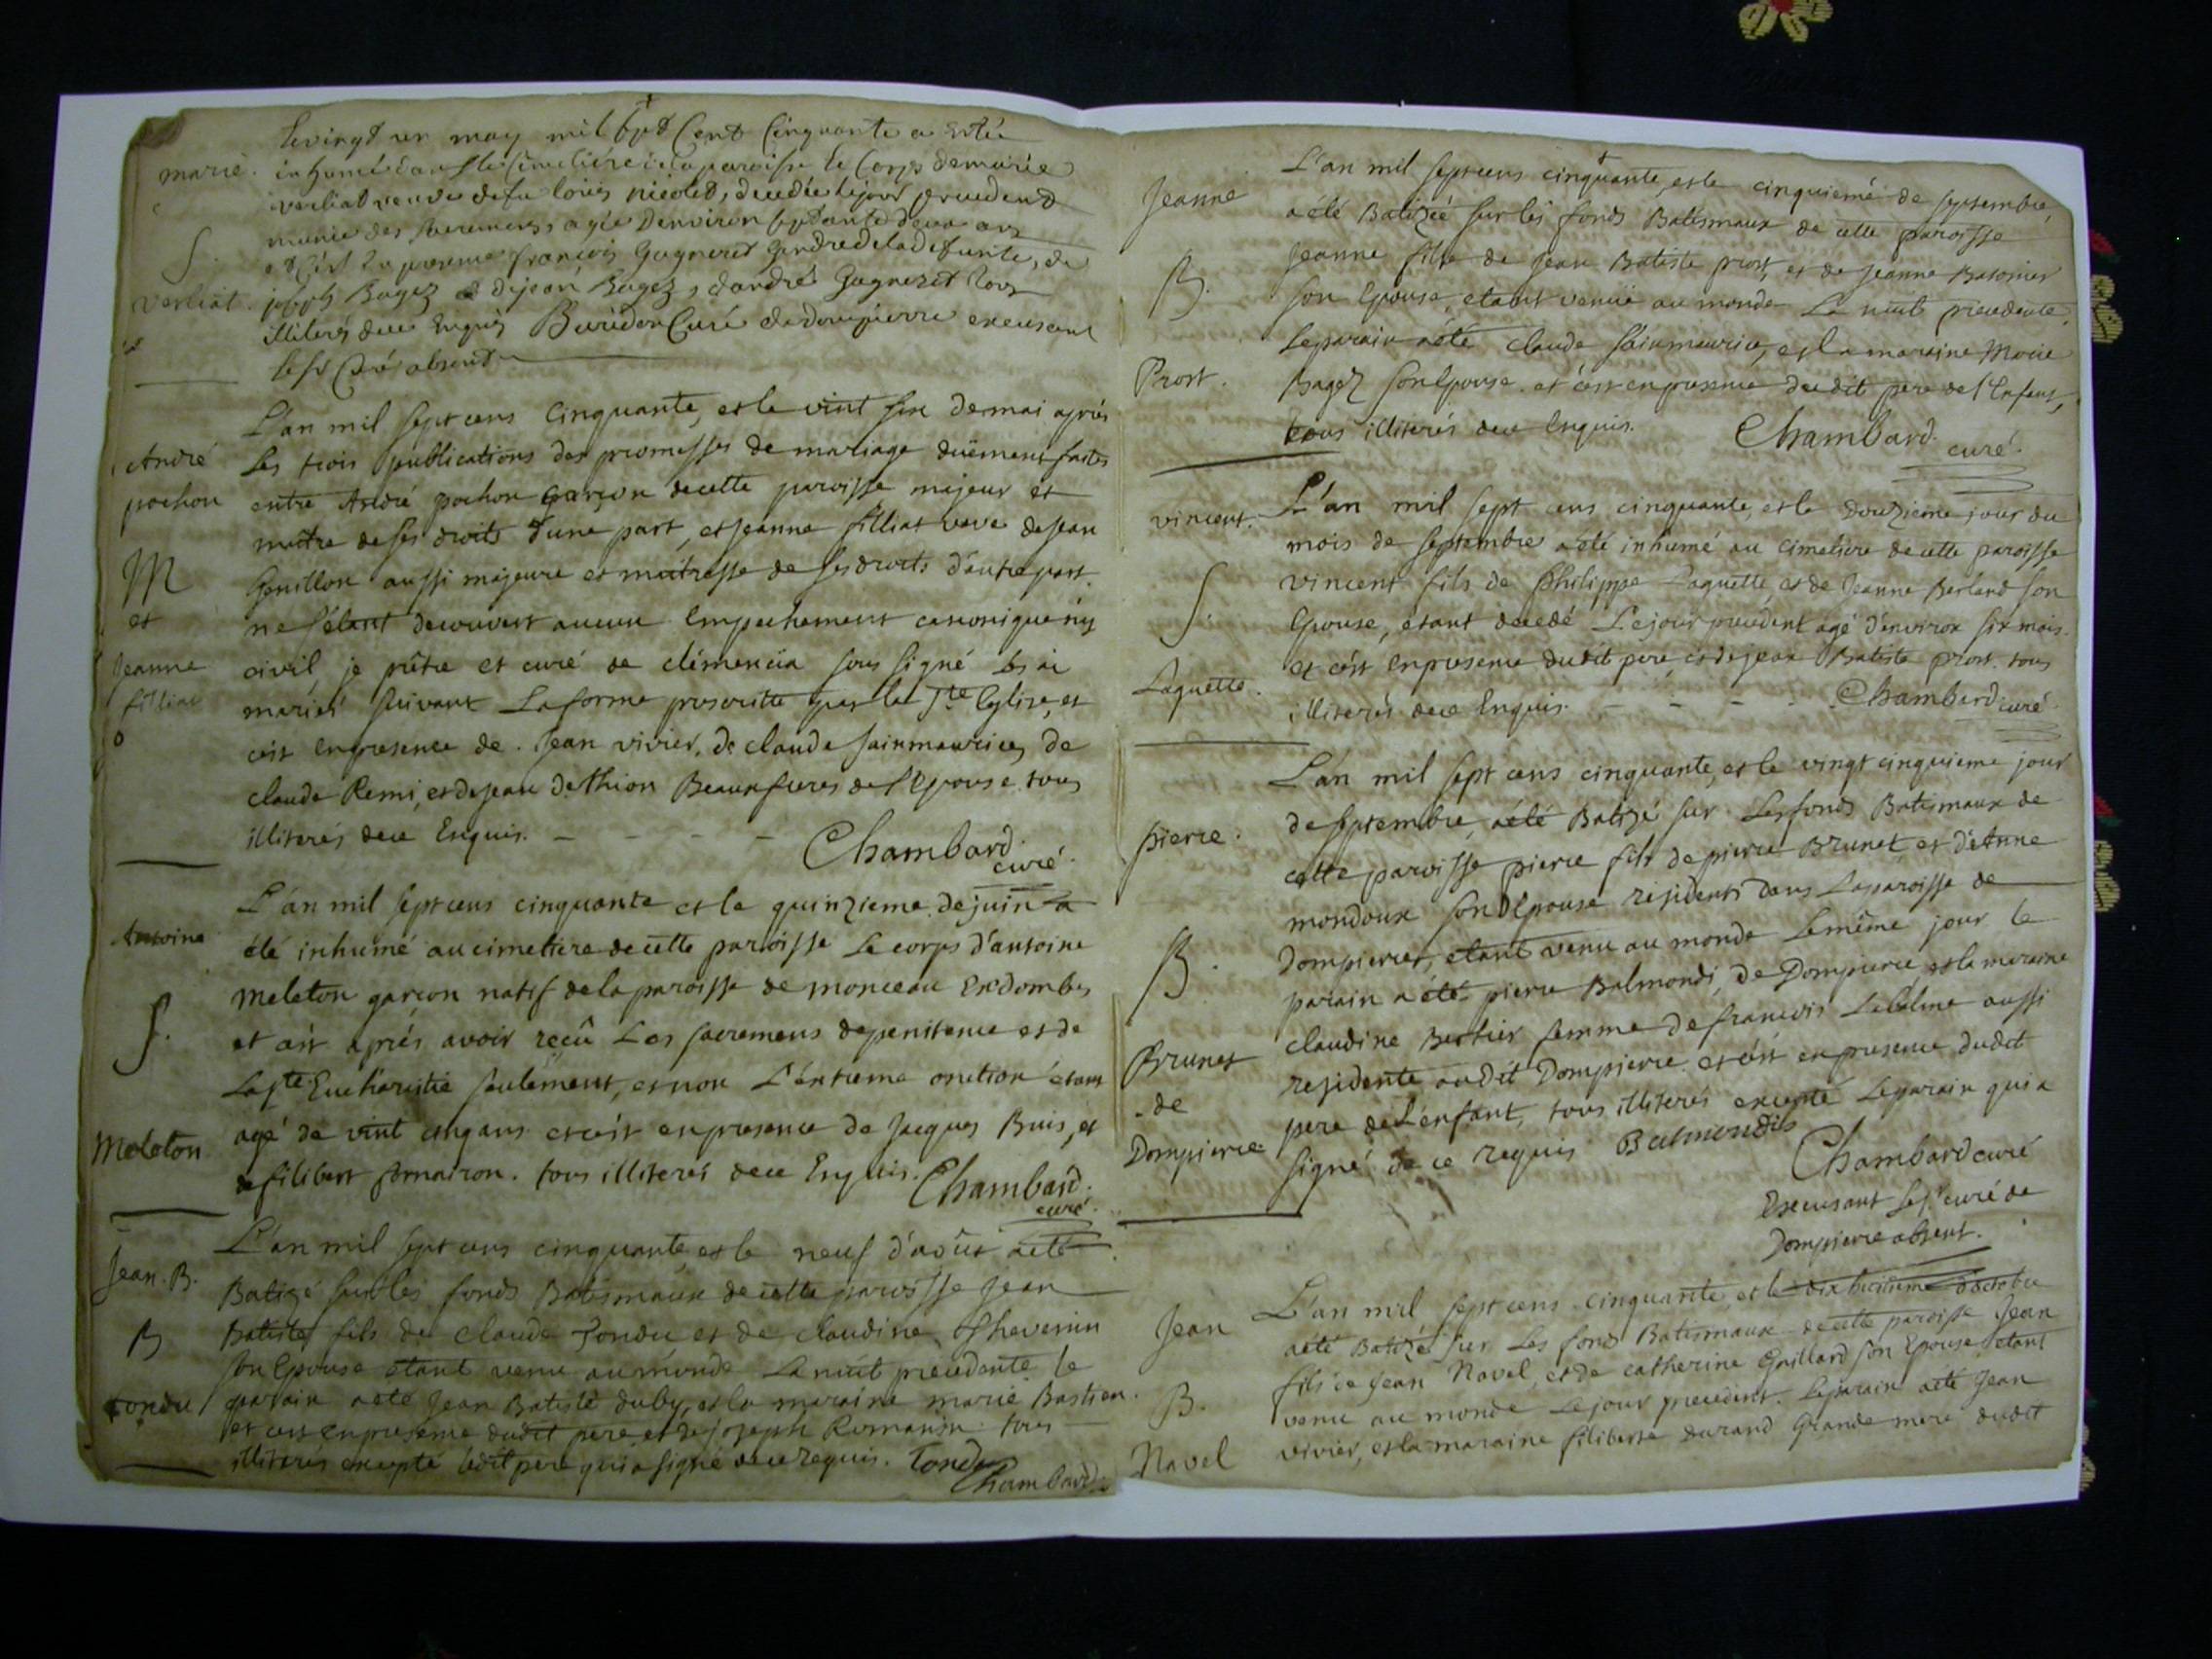 Le vingt un may mil sept Cent Cinquante a estée
marie. inhumée dans le Cimetiére de la paroisse le Corps de marie
verliat veuve de feu loüis nicolet, decedée le jour precedent
munie des sacremens agée d'environ septante deux ans
S. et c'est en presence françois Gagneret Gendre de la defunte, de
verliat. joseph Bagez et de jean Bagez, d'andré Gagneret tous
illiterés de ce Enquis Buridon Curé de dompierre excusant
le sr Curé absent
L'an mil sept cens Cinquante, et le vint six de mai aprés
André les trois publications des promesses de mariage düement faites
pochon entre André pochon Garçon de cette paroisse majeur et
maitre de ses droits d'une part, et Jeanne filliat veve de jean
M Genillon aussi majeure et maitresse de ses droits d'autre part.
et ne s'étant decouvert aucun Empechement canonique ny
Jeanne civil je prêtre et curé de clémencia sous signé les ai
filliat mariés suivant La forme prescritte par la Ste Eglise, et
c'est en presence de Jean vivier, de claude sainmaurice, de
claude Remi, et de jean dethion Beaux freres de l'Epouse tous
illiterés de ce Enquis. - - - -
Chambard.
curé.
L'an mil sept cens cinquante et le quinzieme de juin a
Antoine été inhumé au cimetiere de cette paroisse Le corps d'antoine
meleton garçon natif de la paroisse de monceau En dombes
S. et c'est aprés avoir reçû Les sacremens de penitence et de
La Ste Eucharistie seulement, et non L'éxtreme onction étant
Meleton agé de vint cinq ans et c'est en presence de Jacques Buis, et
de filibert fornairon. tous illiterés de ce Enquis. Chambard.
curé.
L'an mil sept cens cinquante, et le neuf d'août a eté
Jean. B. Batizé sur les fonds Batismaux de cette paroisse Jean
B Batiste fils de Claude Tondu et de claudine Thevenin
son Epouse etant venu au monde La nuit précédente. le
Tondu parain a eté Jean Batiste duby, et la maraine marie Bastien.
et c'est en presence dudit pere et de joseph Romanin tous
illiterés excepté ledit pere qui a signé de ce requis. Tondu
Chambard
L'an mil sept cens cinquante, et le cinquiemé de septembre,
Jeanne a été Batizée sur les fonds Batismaux de cette paroisse
Jeanne fille de Jean Batiste prost, et de Jeanne Batonier
B. son Epouse, etant venüe au monde La nuit precedente.
Le parain a été claude sainmaurice, et la maraine Marie
Prost. Bagez son Epouse. et c'est en presence dudit pere de l'Enfant,
tous illiterés de ce Enquis. Chambard.
curé.
L'an mil sept cens cinquante, et le Douzieme jour du
vincent. mois de septembre a été inhumé au cimetiere de cette paroisse
vincent fils de Philippe Laguette, et de Jeanne Berland son
S. Epouse, étant décedé Le jour precedent agé d'environ six mois.
et c'est en presence dudit pere, et de jean Batiste prost. tous
Laguette. illiterés de ce Enquis. - - - - Chambard curé
L'an mil sept cens cinquante, et le vingt cinquieme jour
de septembre, a été Batizé sur Les fonds Batismaux de
pierre. cette paroisse pierre fils de pierre Brunet et d'Anne
mondoux son Epouse residents dans La paroisse de
B. Dompierre, etant venu au monde Le même jour le
parain a été pierre Balmondi, de Dompierre et la maraine
claudine Bertier femme de françois Lacôline aussi
Brunet residente audit Dompierre. et c'est en presence dudit
de pere de L'enfant, tous illiterés excepté Le parain qui a
Dompierre signé de ce requis Balmondis
Chambard curé
Excusant le Sr curé de
Dompierre absent.
L'an mil sept cens cinquante, et le dix huitieme d'octobre
Jean a été Batizé sur Les fonds Batismaux de cette paroisse Jean
fils de Jean Navel, et de catherine Gaillard son Epouse, étant
B. venu au monde Le jour precedent. Le parain a été Jean
Navel vivier, et la maraine filiberte durand Grande mere dudit